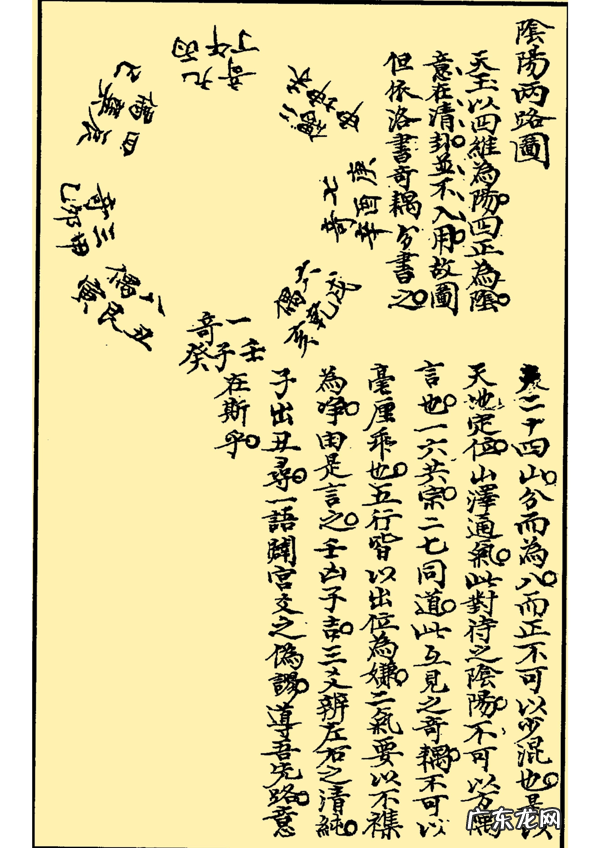 陰陽兩路圖
天玉以四維為陽四正為陰
意在清卦並不入用故圖
但依洛書奇耦分書之
二十四山分而為八而正不可以少混也是以
天地定位山澤通氣此對待之陰陽不可以方隅
言也一六共宗二七同道此互見之奇耦不可以
毫厘乖也五行皆以出位為嫌二氣要以不襍
為淨由是言之壬凶子吉三爻辨左右之清純
子出丑尋一語闢宮交之偽謬導吾先路意
在斯乎
丙午丁
奇九
庚酉辛
奇七
戌乾亥
偶六
壬子癸
奇一
丑艮寅
偶八
甲卯乙
奇三
辰巽巳
偶四
广东龙网